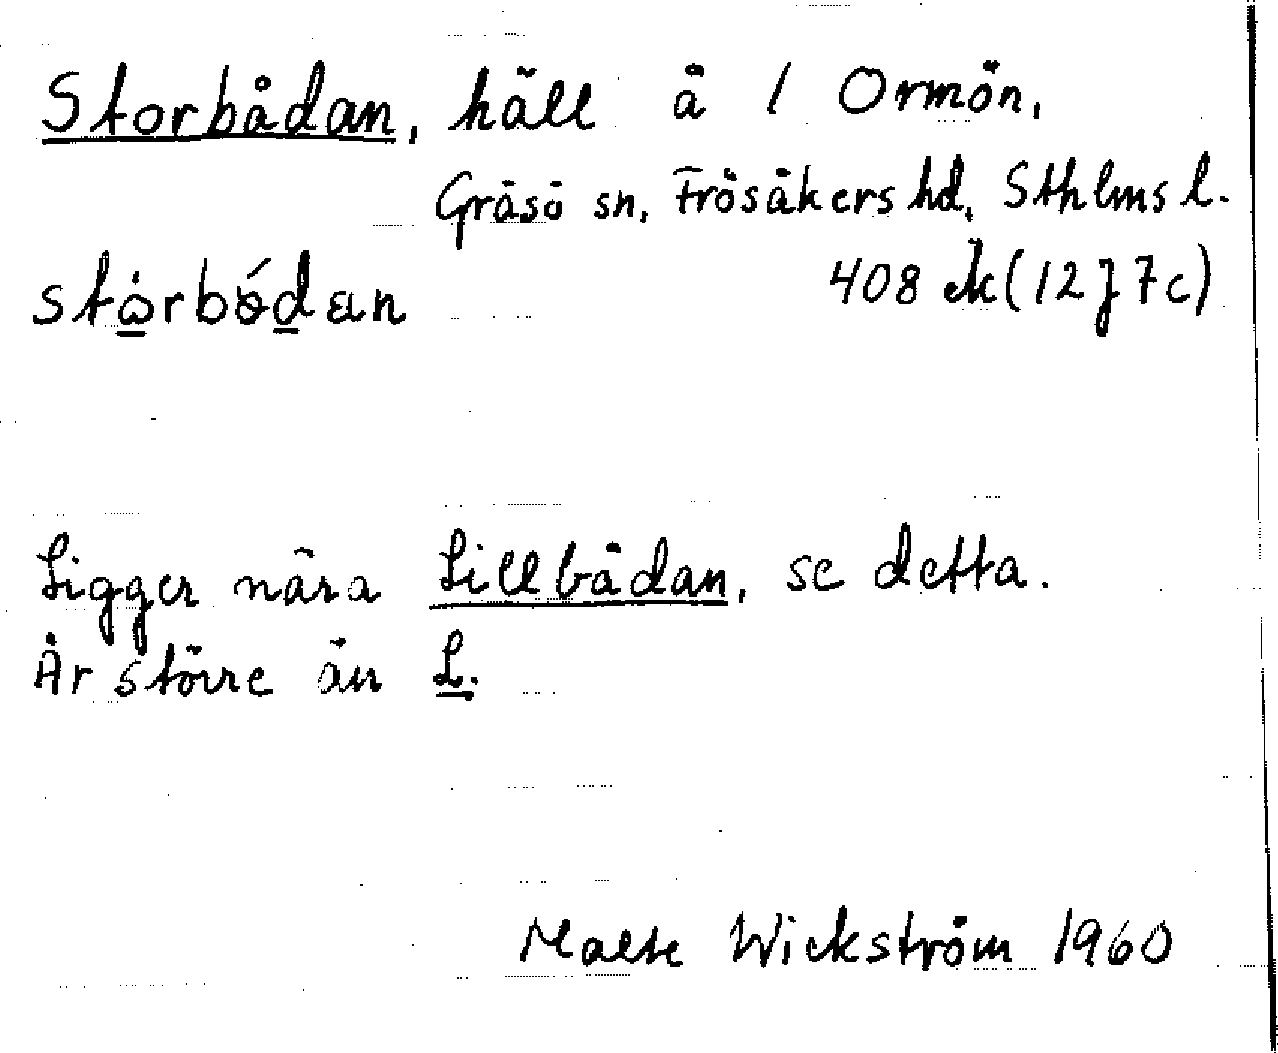 Storbådan, häll å 1 Ormön,
Gräsö sn, Frösåkers hd, Sthlms l.
408 ek (12 J 7c)
Ligger nära Lillbådan, se detta.
Är större än L.
Malte Wickström 1960